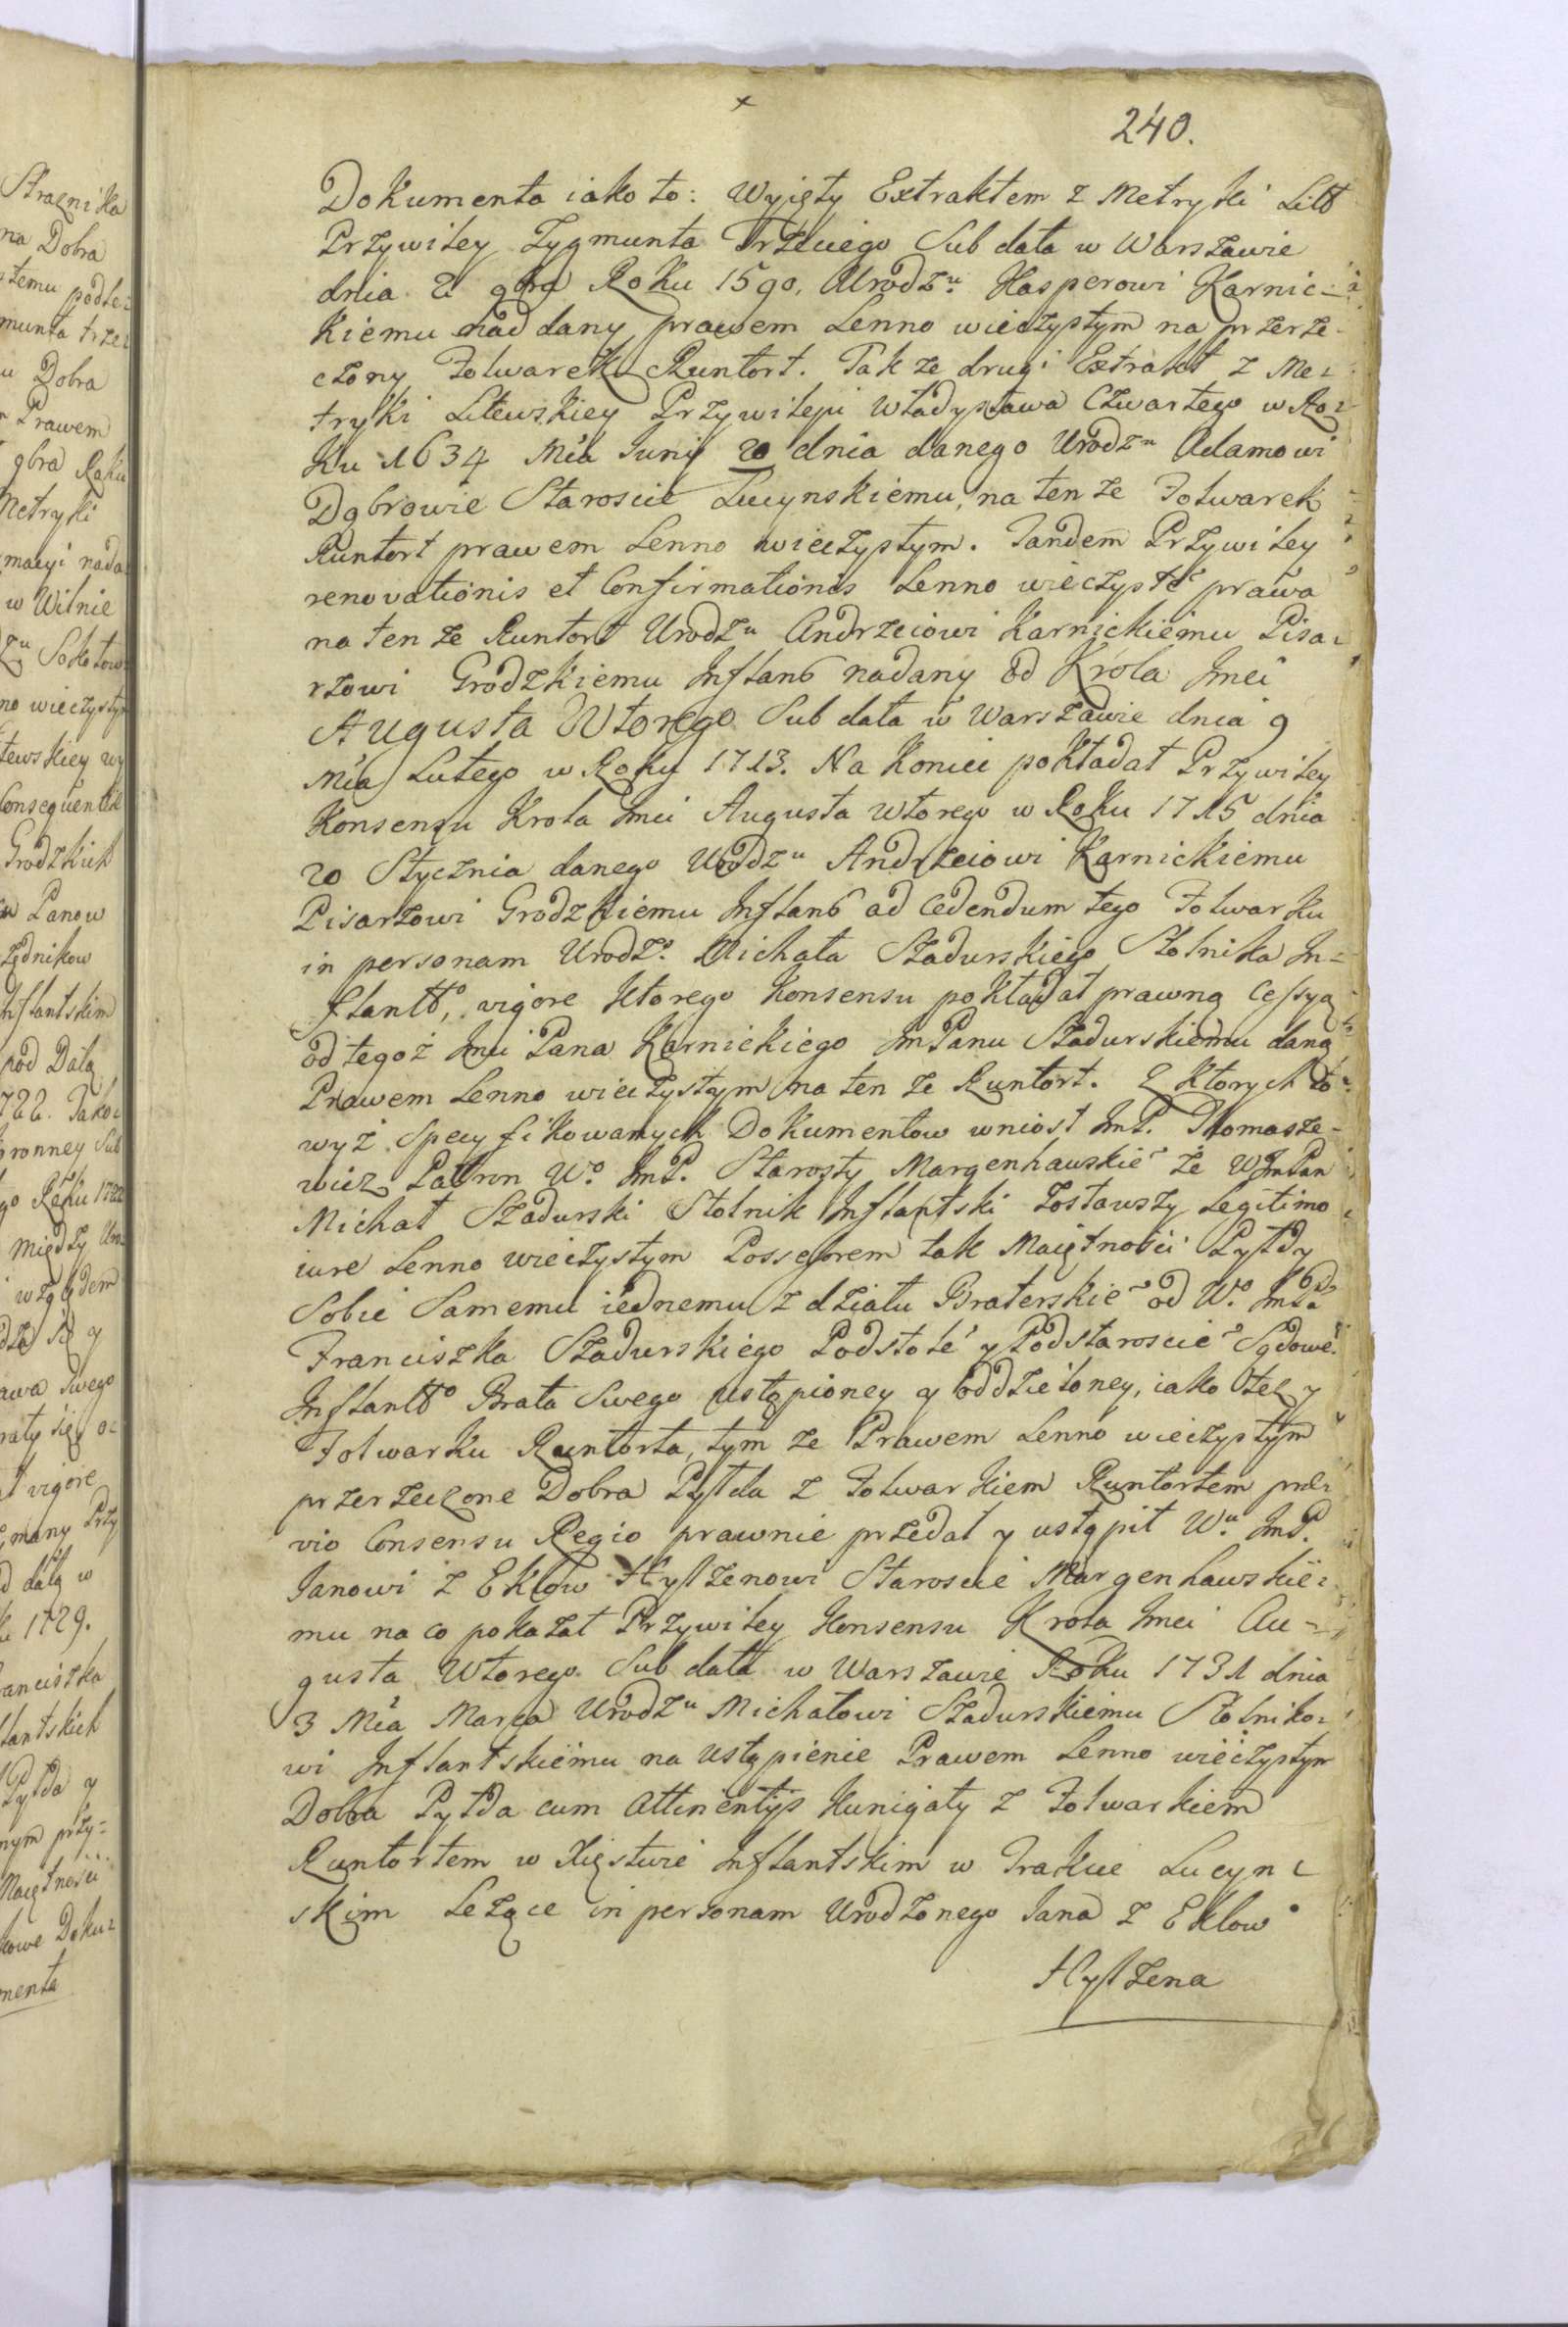 240.
Dokumenta iako to: Wyięty Extraktem z Metryki Litt
Przywiley Zygmunta Trzeciego Sub data w Warszawie
dnia 2 9bra Roku 1590, Urodzu Kasperowi Karnic-
kiemu nad dany prawem Lenno wieczystym na przerze-
czony Folwarek Runtort. Tak ze drugi Extrakt z Me-
tryki Litewskiey Przywileju Władysława Czwartego w Ro-
ku 1634 Mca Junij 20 dnia danego Urodzu Adamowi
Dąbrowie Staroscie Lucynskiemu, na ten ze Folwarek
Runtort prawem Lenno wieczystym. Tandem Przywiley
renovationis et Confirmationis Lenno wieczyste prawa
na ten ze Runtort Urodzu Andrzeiowi Karnickiemu Pisa-
rzowi Grodzkiemu Inflant nadany od Krola Jmci
Augusta Wtorego Sub data w Warszawie dnia 9
Mca Lutego w Roku 1713. Na koniec pokładał Przywiley
Konsensu Krola Jmci Augusta Wtorego w Roku 1715 dnia
20 Stycznia danego Urodzu Andrzeiowi Karnickiemu
Pisarzowi Grodzkiemu Inflant ad cedendum tego Folwarku
in personam Urodzo Michała Szadurskiego Stolnika In-
flantto, vigore ktorego konsensu pokładał prawną Cessyą
od tegoż Jmci Pana Karnickiego JmPanu Szadurskiemu daną
Prawem Lenno wieczystym na ten ze Runtort. Z ktorych to
wyż specyfikowanych Dokumentow wniosł JmP. Thomasze-
wicz Patron Wo JmP. Starosty Margenhauskie ze WJmPan
Michał Szadurski Stolnik Inflantski zostawszy Legitimo
iure Lenno wieczystym Possessorem tak Maiętności Pyłdy
Sobie Samemu iednemu z działu Braterskie od Wo JmPa
Franciszka Szadurskiego Podstole y Podstaroscie Sądowe
Inflantto Brata Swego ustąpioney y oddzieloney, iako tez y
Folwarku Runtorta, tym ze Prawem Lenno wieczystym
przerzeczone Dobra Pyłda z Folwarkiem Runtortem prae-
vio Consensu Regio prawnie przedał y ustąpił Wu JmP.
Janowi z Eklow Hylzenowi Staroscie Margenhawskie-
mu na co pokazał Przywiley Konsensu Krola Jmci Au-
gusta Wtorego Sub data w Warszawie Roku 1731 dnia
3 Mca Marca Urodzu Michałowi Szadurskiemu Stolniko-
wi Inflantskiemu na ustąpienie Prawem Lenno wieczystym
Dobra Pyłda cum attinentijs Kunigały z Folwarkiem
Runtortem w Xięstwie Inflantskim w Trakcie Lucyn-
skim Leżące in personam Urodzonego Jana z Eklow
Hylzena